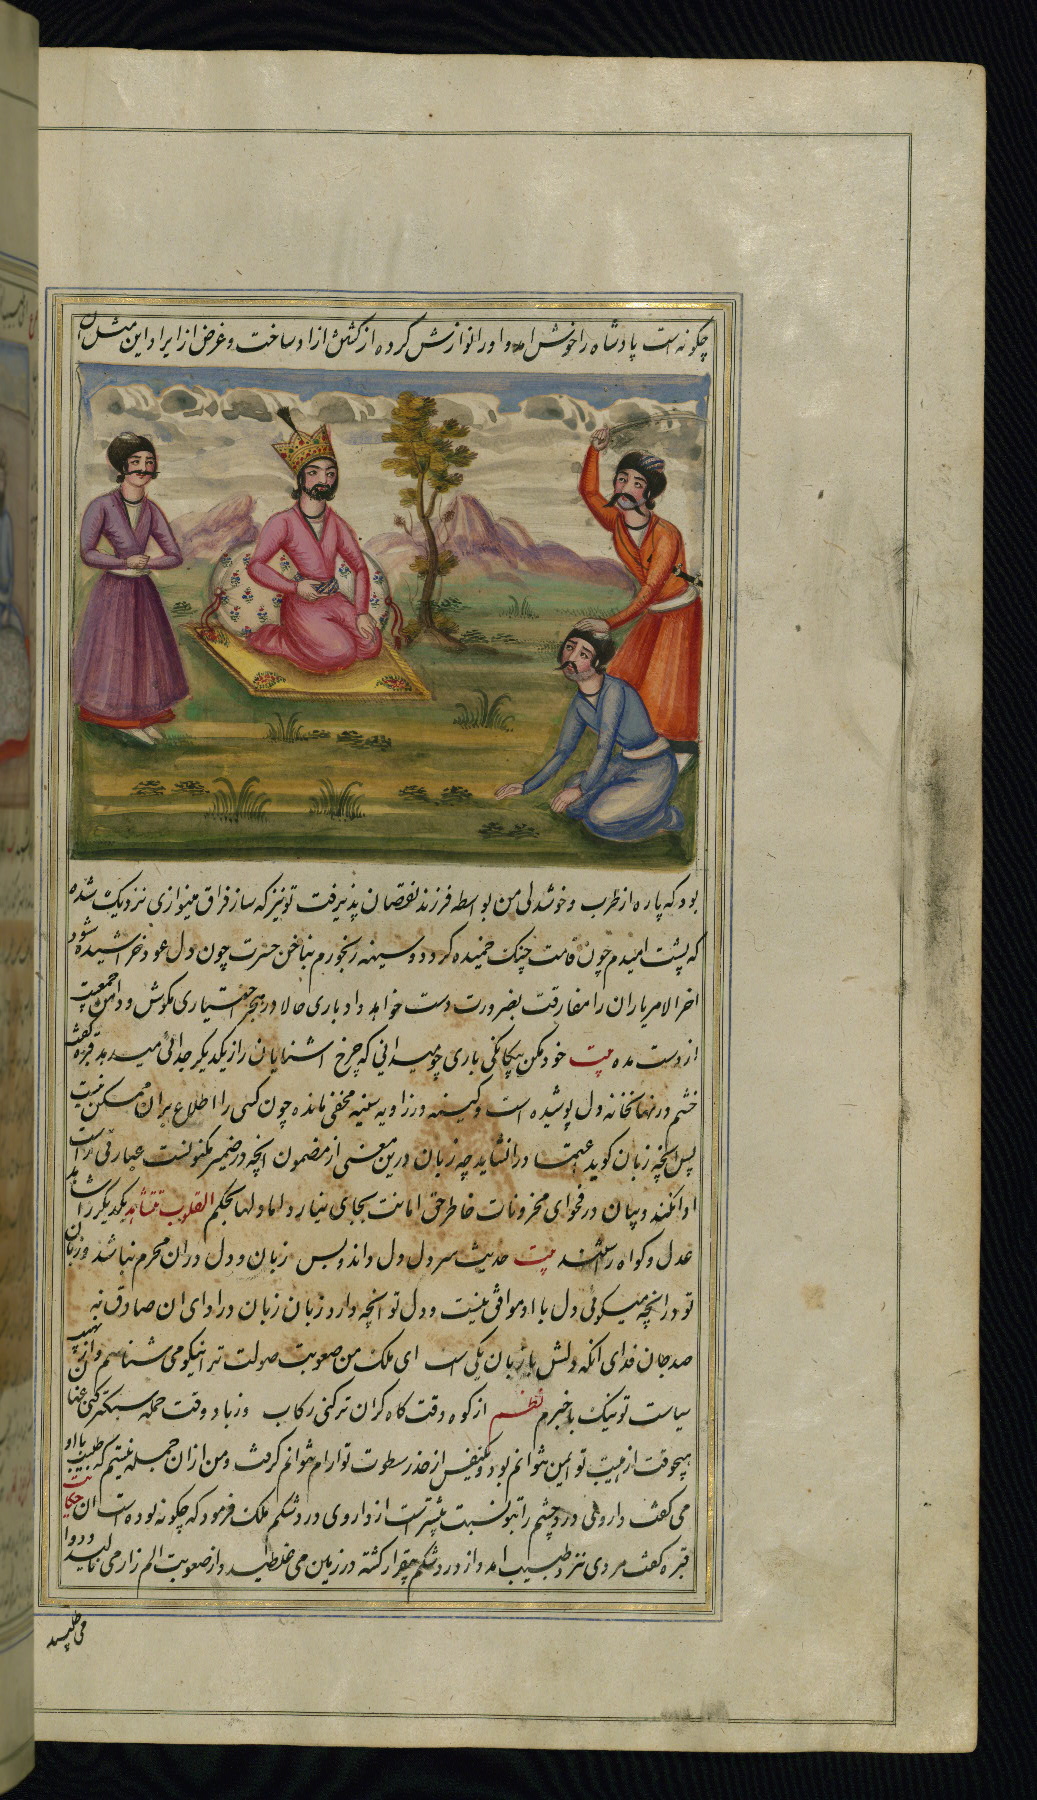 چگونه است پادشاه را خوش آمد و او را نوازش کرده از کشتن آزاد ساخت و غرض از ایراد این مثل آن
بود که پاره از طرب و خوشدلی من بواسطه فرزند نقصان پذیرفت تو نیز که ساز فراق مینوازی نزدیک شده
که پشت امیدم چون قامت چنک خمیده کردد و سینه رنجورم بناخن حسرت چون دل عود خراشیده شود
اخر الامر یاران را مفارقت بضرورت دست خواهد داد باری حالا در هجر اختیاری مکوش و دامن جمعیت
از دست مده بیت خود مکن بیکانکی باری چو میدانی که چرخ اشنایان را ز یکدیکر جدائی میدهد قبره کفت
خشم در نهانخانه دل پوشیده است و کینه در زاویه سینه مخفی مانده چون کسی را اطلاع بران ممکن نیست
پس انچه زبان کوید اعتماد را نشاید چه زبان درین معنی از مضمون انچه در ضمیر مکنونست عبارتی راست
ادا نکند و بیان در فحوای مخزونات خاطر حق امانت بجای نیارد اما دلها بحکم القلوب تتشاهد یکدیکر را شاهد
عدل و کواه راستند بیت حدیث سر دل دل داند و بس زبان و دل دران محرم نباشد و زبان
تو در انچه میکوئی دل با او موافق نیست و دل تو انچه دارد زبان زبان در ادای ان صادق نه
صد جان فدای انکه دلش با زبان یکی است ای ملک من صعوبت صولت ترا نیکو می شناسم و از نهیب
سیاست تو نیک با خبرم نظم از کوه وقت کاه کران تر کنی رکاب وز باد وقت حمله سبکتر کنی عنان
هیچوقت از هیبت تو ایمن نتوانم بود و یکنفس از حذر سطوت تو ارام نتوانم کرفت و من از ان جمله نیستم که طبیب با او
می کفت داروی درد چشم را بتو نسبت بیشتر است از داروی درد شکم ملک فرمود که چکونه بوده است ان حکایت
قبره کفت مردی نزد طبیب امد و از درد شکم بیقرار کشته در زمین می غلطید و از صعوبت الم زار می نالید و دوا
می طلبید